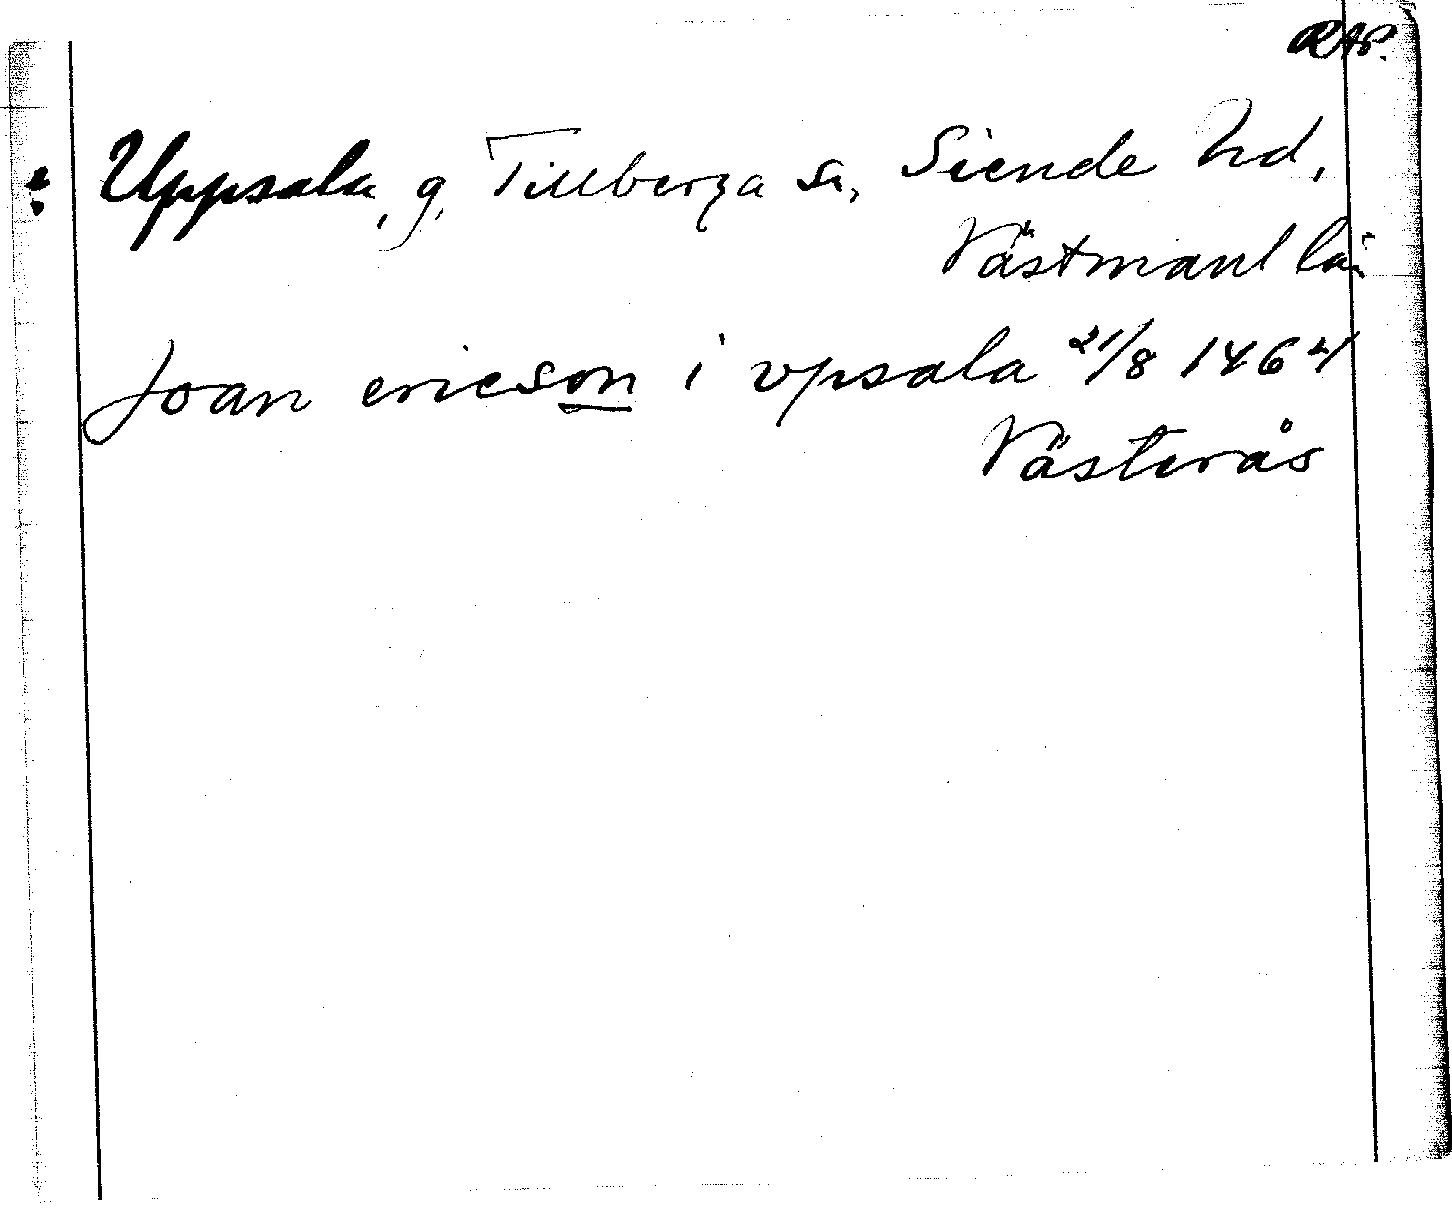 RAP.
Uppsala, g, Tillberga sn, Siende hd,
Västmanl län
Joan ericson i vpsala 21/8 1464
Västerås